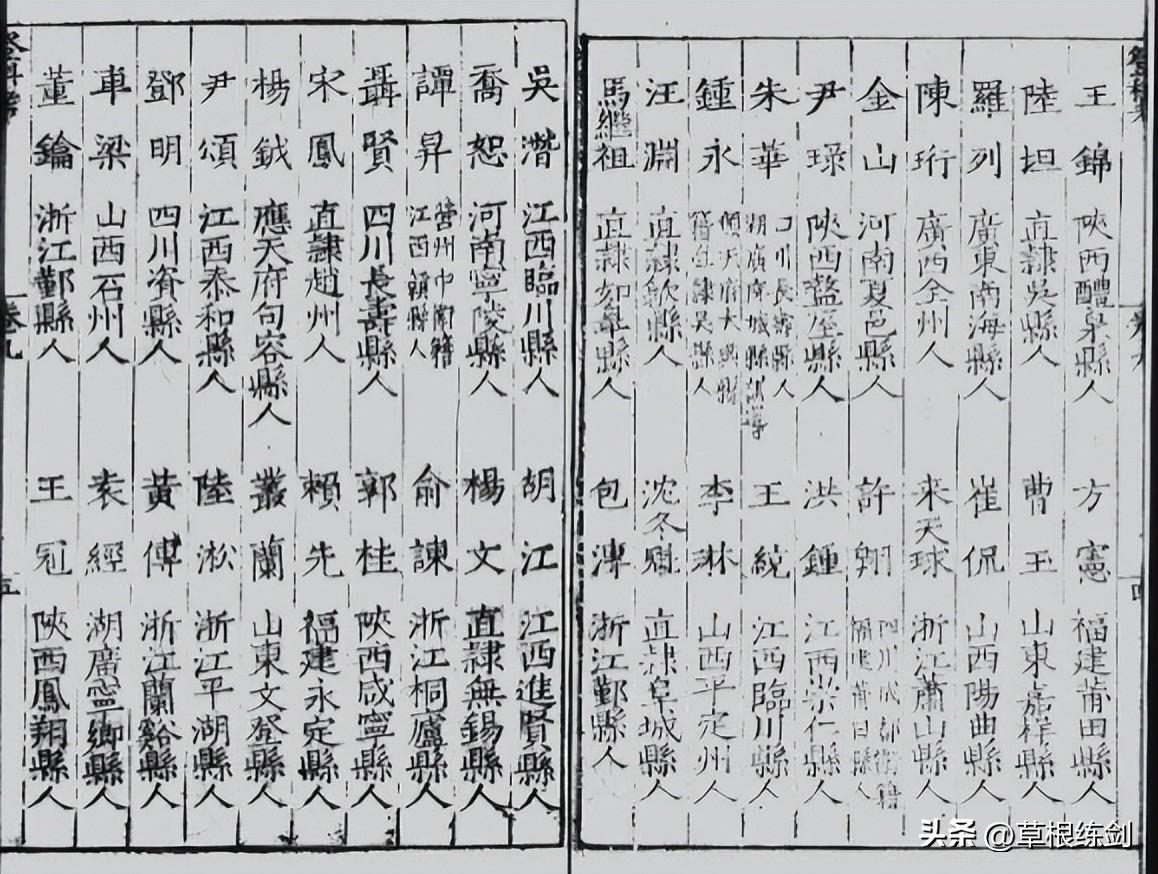 王錦 陝西醴泉縣人 方憲 福建莆田縣人
陸坦 直隷吳縣人 曹玉 山東嘉祥縣人
羅列 廣東南海縣人 崔侃 山西陽曲縣人
陳珩 廣西全州人 來天球 浙江蕭山縣人
金山 河南夏邑縣人 許翔 四川成都衛籍 福建莆田縣人
尹琭 陝西盩厔縣人 洪鍾 江西崇仁縣人
朱華 川長壽縣人 湖廣應城縣訓導 王綂 江西臨川縣人
鍾永 順天府大興縣 籍直隷吳縣人 李琳 山西平定州人
汪淵 直隷歙縣人 沈冬魁 直隷阜城縣人
馬繼祖 直隷如皋縣人 包溥 浙江鄞縣人
吳潛 江西臨川縣人 胡江 江西進賢縣人
喬恕 河南寧陵縣人 楊文 直隷無錫縣人
譚昇 營州中衛籍 江西贛縣人 俞諫 浙江桐廬縣人
聶賢 四川長壽縣人 郭桂 陝西咸寧縣人
宋鳳 直隷趙州人 賴先 福建永定縣人
楊鉞 應天府句容縣人 叢蘭 山東文登縣人
尹頌 江西泰和縣人 陸淞 浙江平湖縣人
鄧明 四川資縣人 黃傅 浙江蘭谿縣人
車梁 山西石州人 袁經 湖廣寧鄉縣人
董鑰 浙江鄞縣人 王冠 陝西鳳翔縣人
卷九
五
头条 @草根练剑